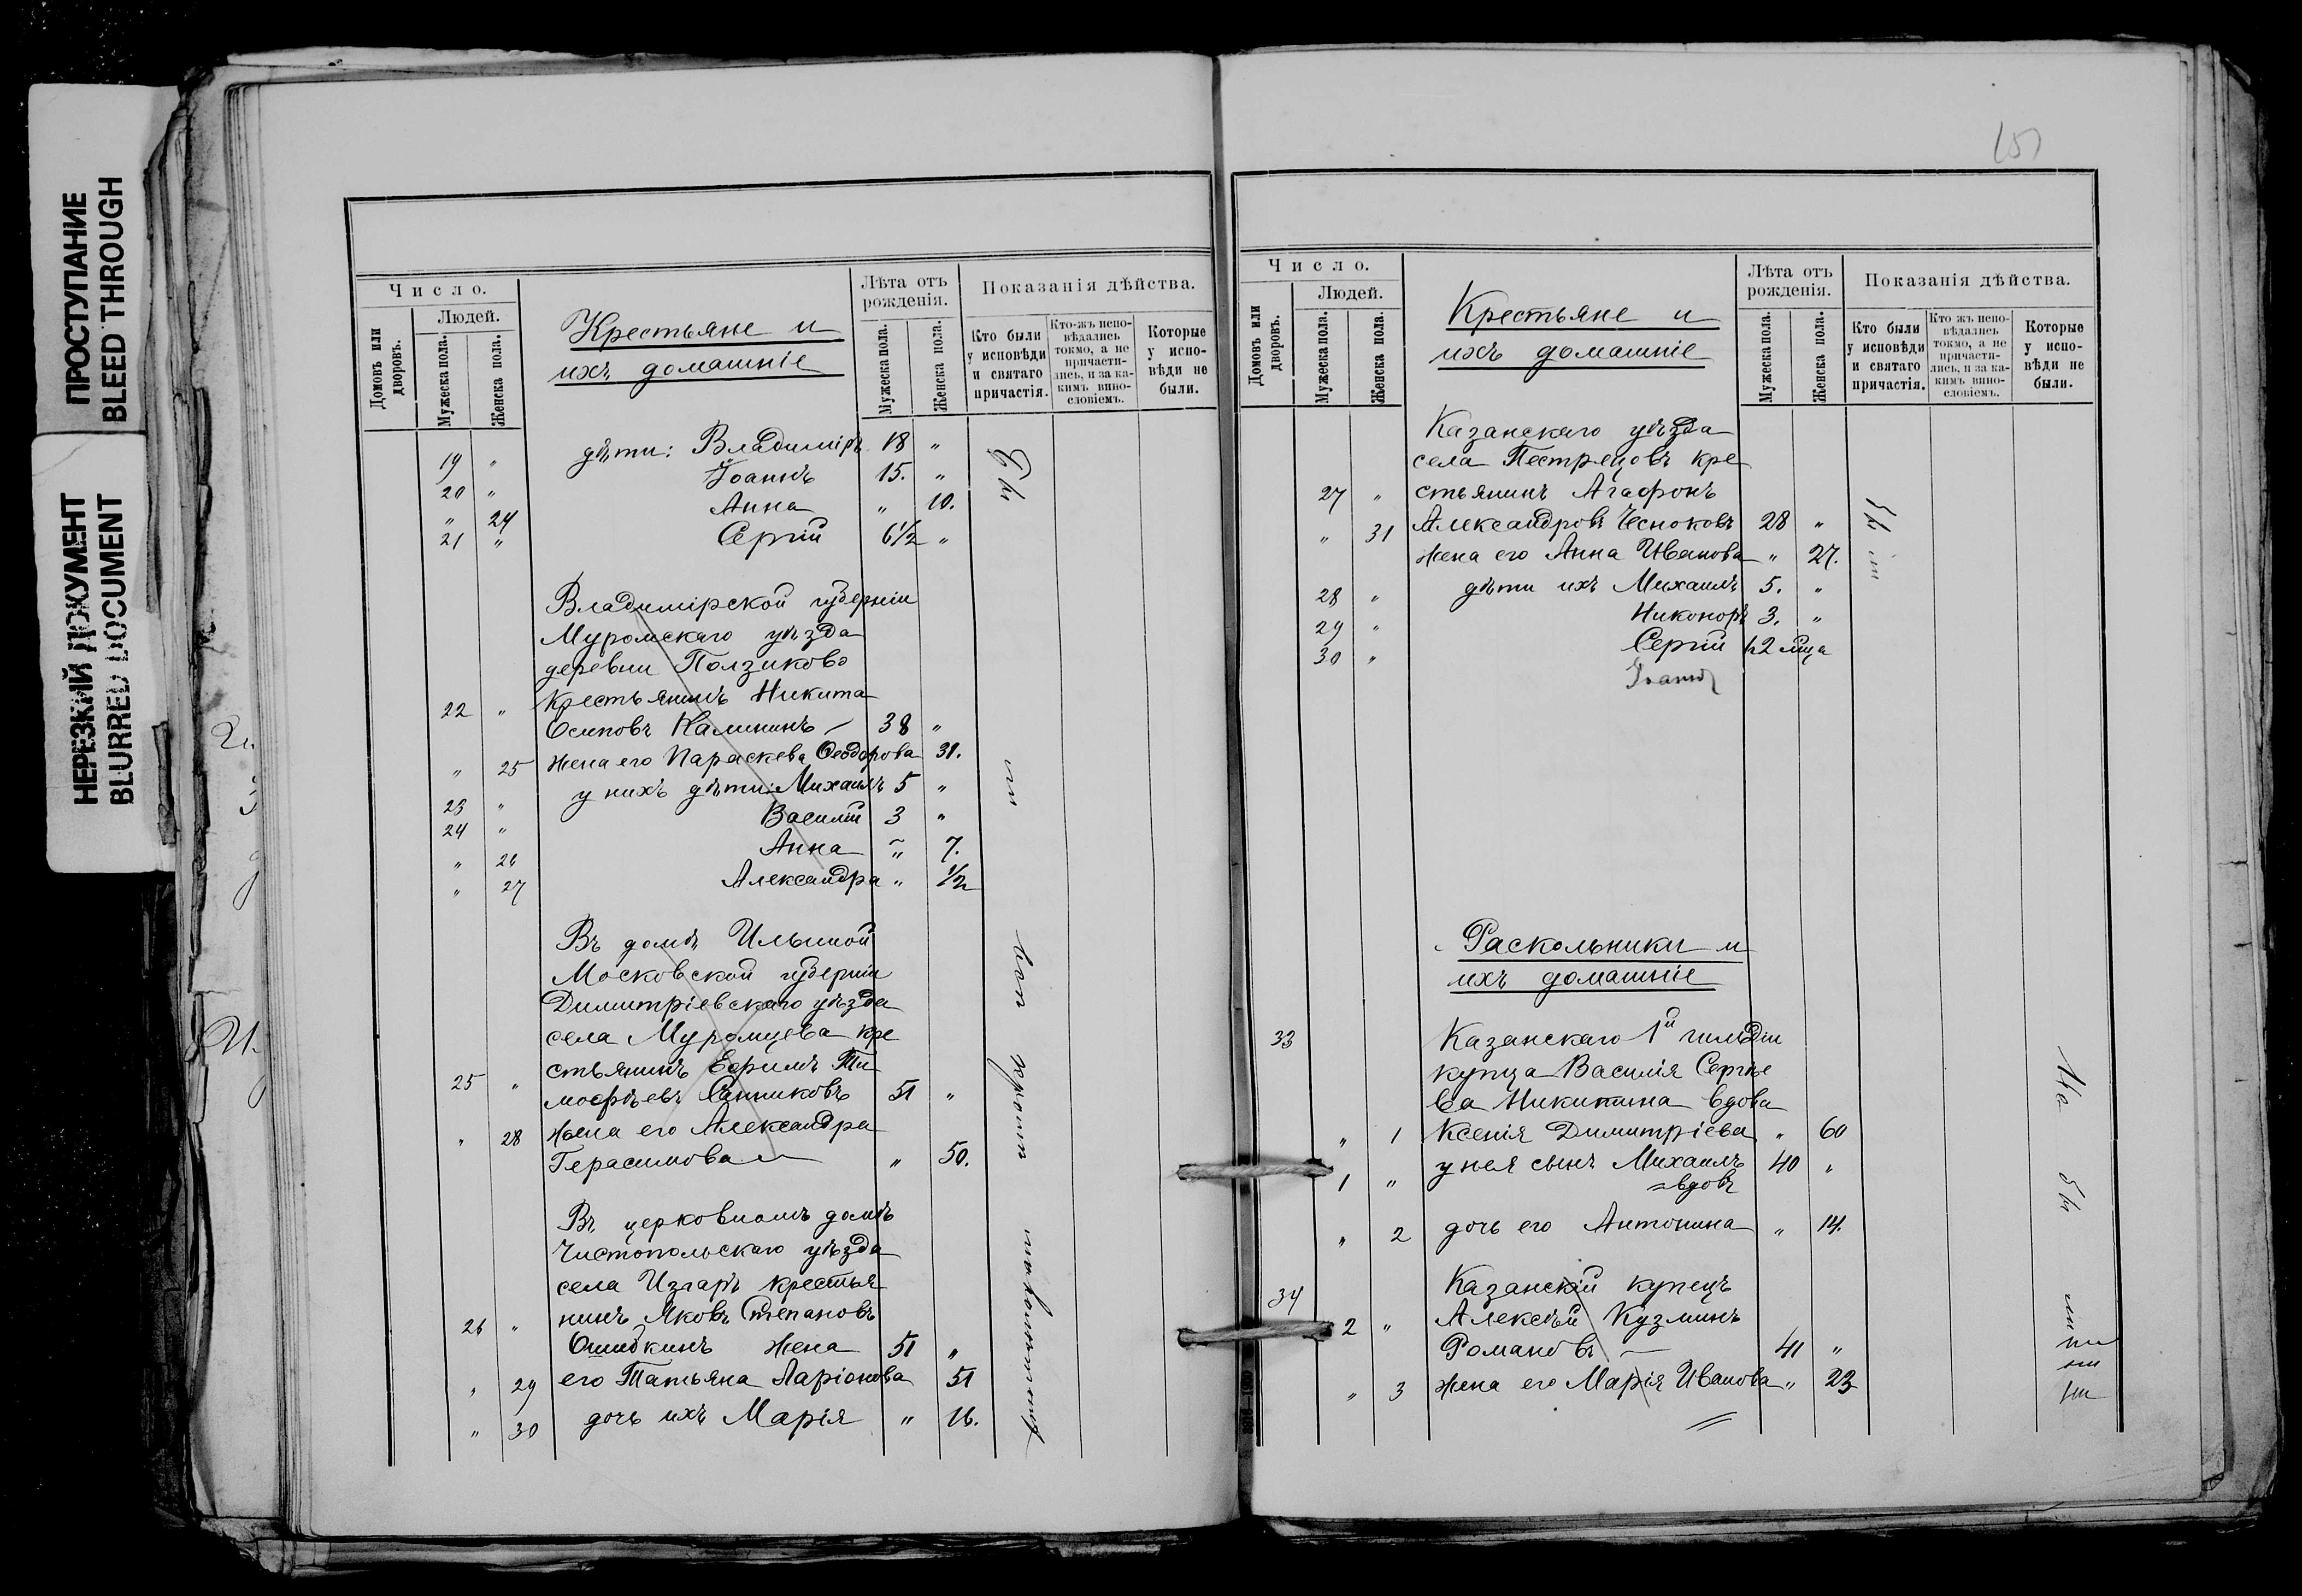 ПРОСТУПАНИЕ
BLEED THROUGH
НЕРЕЗКИЙ ДОКУМЕНТ
BLURRED DOCUMENT
Число.
Людей.
Домовъ или дворовъ.
Мужеска пола.
Женска пола.
Крестьяне и
ихъ домашніе
Лѣта отъ рожденія.
Мужеска пола.
Женска пола.
Показанія дѣйства.
Кто были у исповѣди и святаго причастія.
Кто-жъ исповѣдались токмо, а не причастились, и за какимъ винословіемъ.
Которые у исповѣди не были.
19 " дѣти: Владиміръ 18 "
20 " Іоаннъ 15. "
" 24 Анна " 10.
21 " Сергій 6½ "
Владимірской губерніи
Муромскаго уѣзда
деревни Ползиково
22 " крестьянинъ Никита
Осиповъ Калининъ 38 "
" 25 жена его Параскева Ѳеодорова 31.
23 " у нихъ дѣти: Михаилъ 5 "
24 " Василій 3 "
" 26 Анна " 7.
" 27 Александра " ½
Въ домѣ Ильиной
Московской губерніи
Димитріевскаго уѣзда
села Муромцева кре
25 " стьянинъ Ефимъ Ти
моѳѣевъ Санниковъ 51 "
" 28 жена его Александра
Герасимова " 50.
Въ церковномъ домѣ
Чистопольскаго уѣзда
села Изгаръ крестья
26 " нинъ Яковъ Степановъ
Ошибкинъ жена 51 "
" 29 его Татьяна Ларіонова 51
" 30 дочь ихъ Марія " 16.
151
Число.
Людей.
Домовъ или дворовъ.
Мужеска пола.
Женска пола.
Крестьяне и
ихъ домашніе
Лѣта отъ рожденія.
Мужеска пола.
Женска пола.
Показанія дѣйства.
Кто были у исповѣди и святаго причастія.
Кто жъ исповѣдались токмо, а не причастились, и за какимъ винословіемъ.
Которые у исповѣди не были.
Казанскаго уѣзда
села Пестрецовъ кре
27 " стьянинъ Агафонъ
" 31 Александровъ Чесноковъ 28 "
жена его Анна Иванова " 27.
28 " дѣти ихъ Михаилъ 5. "
29 " Никоноръ 3. "
30 " Сергій 2 мца
Іоаннъ
Раскольники и
ихъ домашніе
33 Казанскаго 1й гильдіи
купца Василія Сергѣе
ва Никитина вдова
" 1 Ксенія Димитріева " 60
1 " у нея сынъ Михаилъ 40 "
=вдовъ
" 2 дочь его Антонина " 14.
34 Казанскій купецъ
2 " Алексѣй Кузминъ
Романовъ 41 "
" 3 жена его Марія Иванова " 23